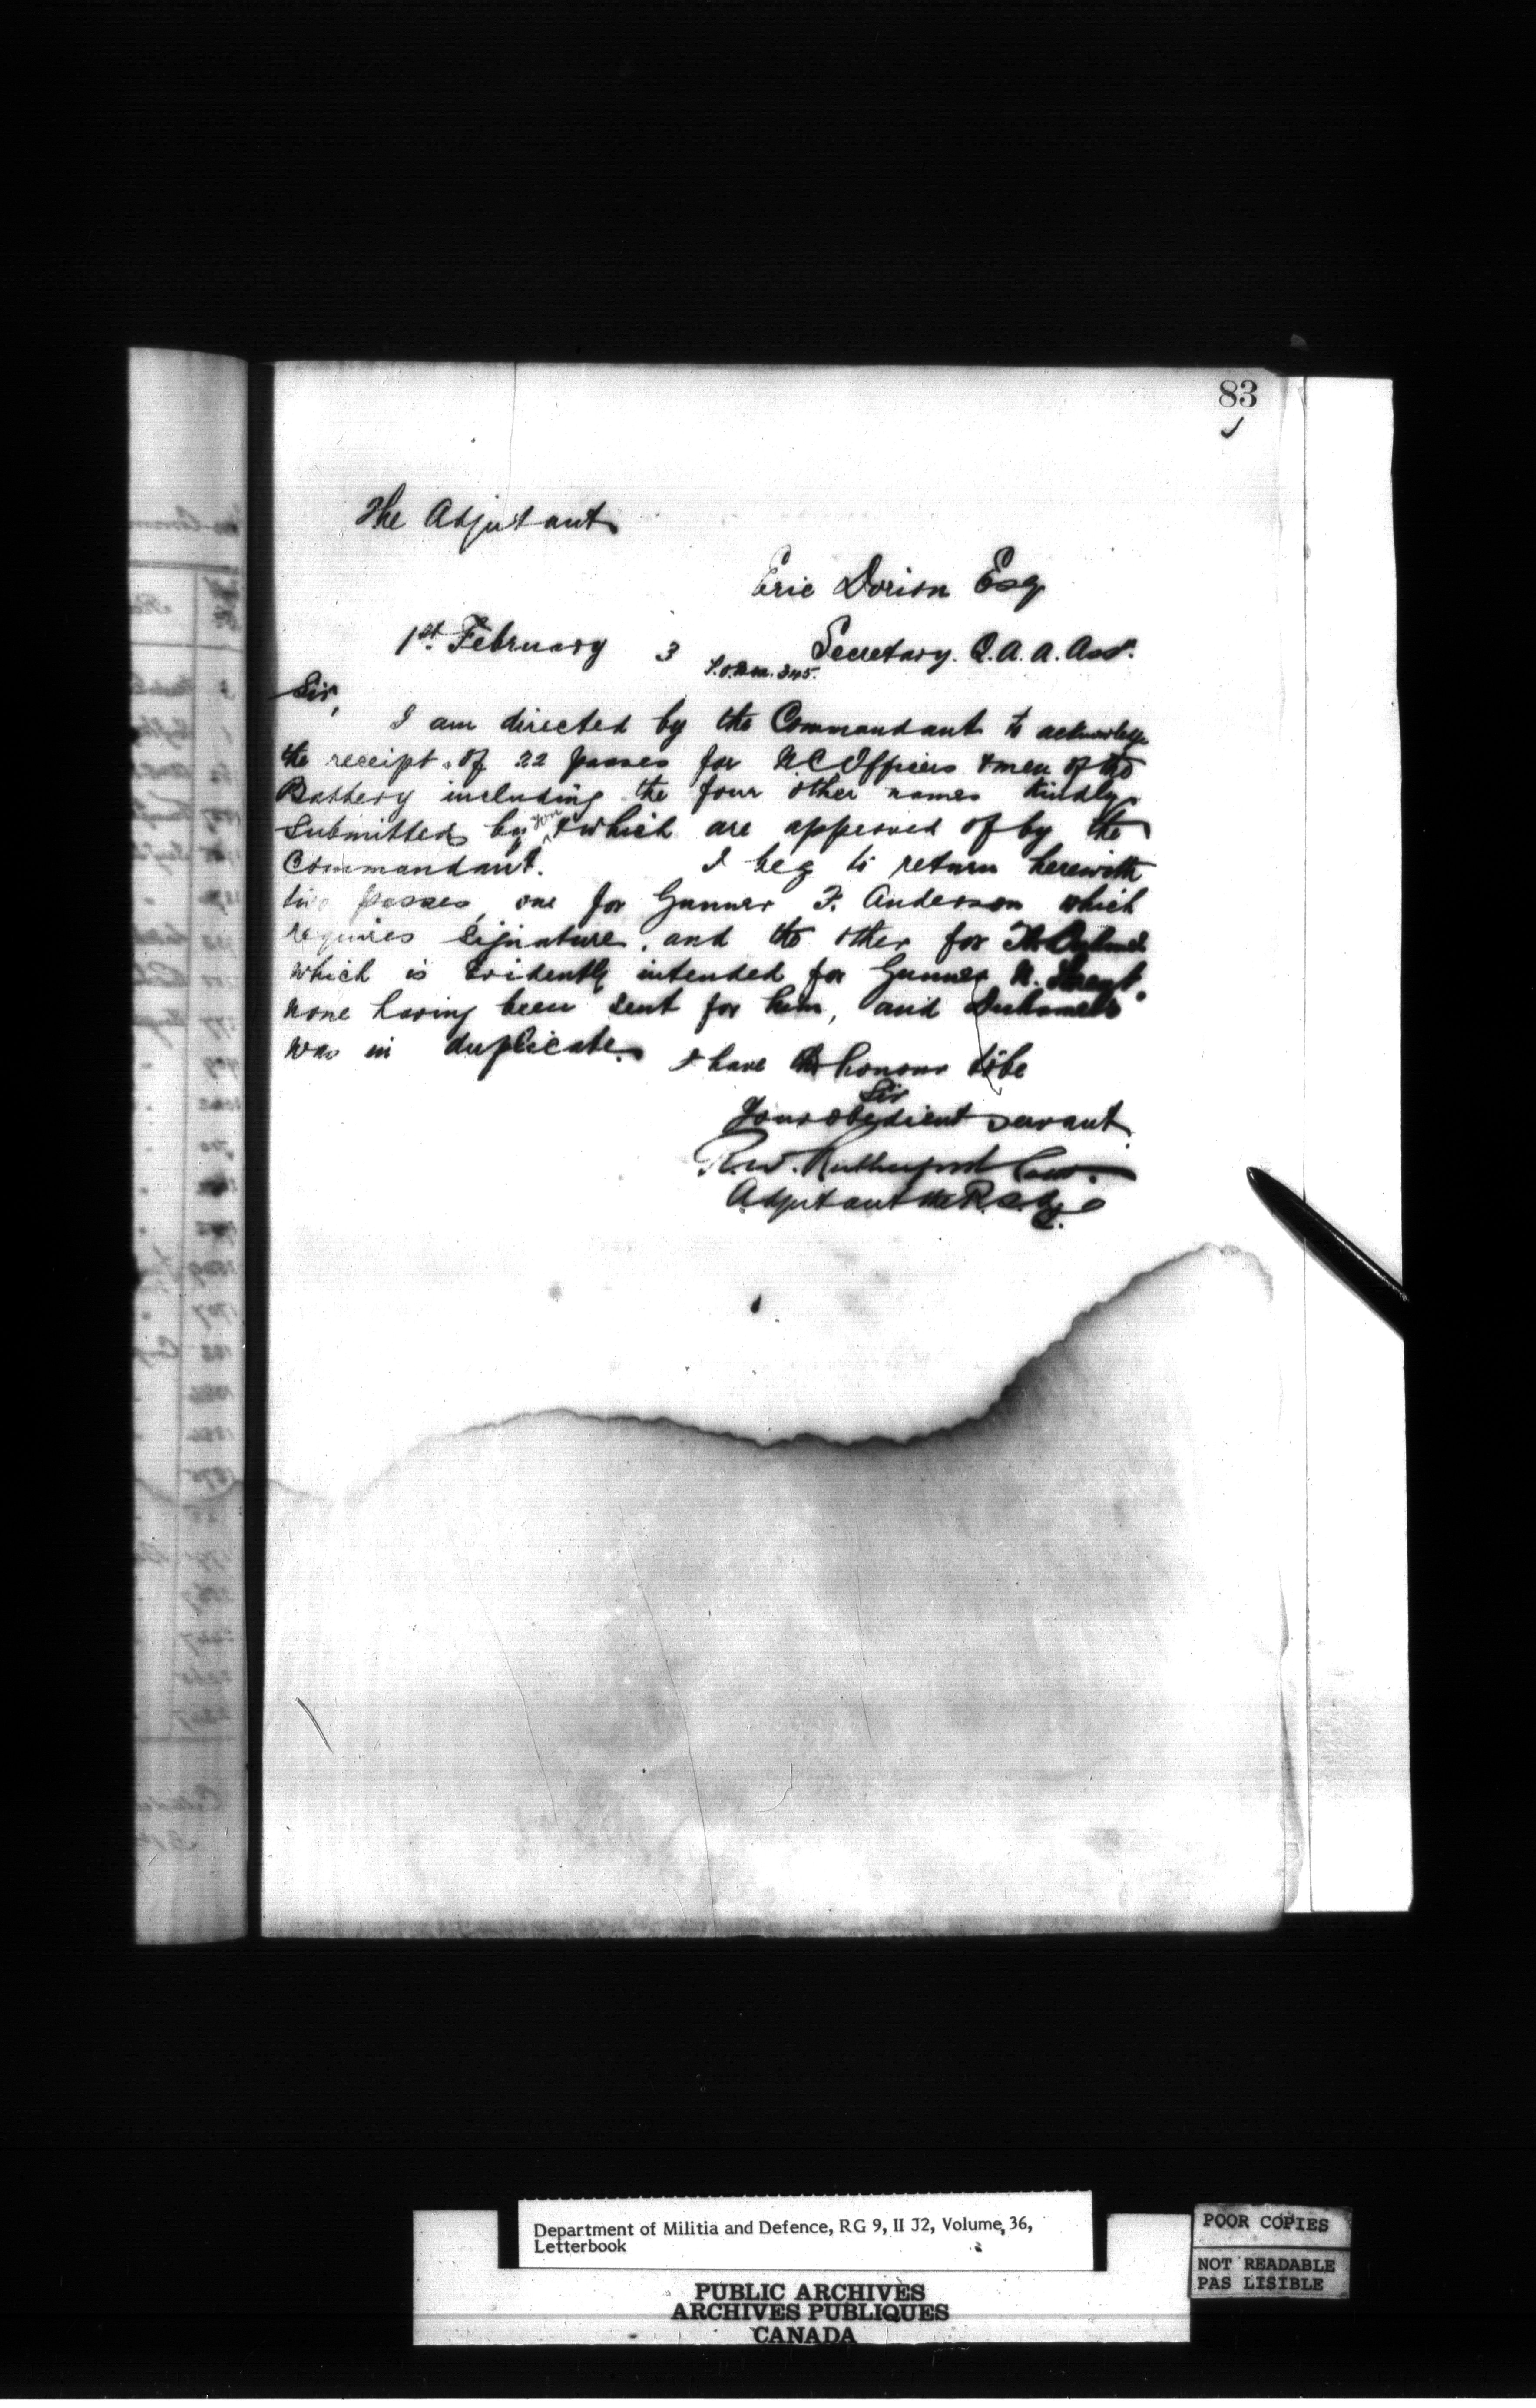 83
The Adjutant
Eric Dorion Esq
1st. February 3 Secretary. Q.A.A. Assn.
P.O. Box. 345.
Sir,
I am directed by the Commandant to acknowledge
the receipt of 22 passes for N.C. Officers & men of the
Battery including the four other names kindly
submitted by you & which are approved of by the
Commandant. I beg to return herewith
two passes, one for Gunner F. Anderson which
requires signature, and the other for
which is evidently intended for Gunner N.
none having been sent for him, and Duhamel's
was in duplicate. I have the honour to be
Sir
Your obedient servant
R.W. Rutherford
Adjutant the R.C.A.
Department of Militia and Defence, RG 9, II J2, Volume 36,
Letterbook
POOR COPIES
NOT READABLE
PAS LISIBLE
PUBLIC ARCHIVES
ARCHIVES PUBLIQUES
CANADA